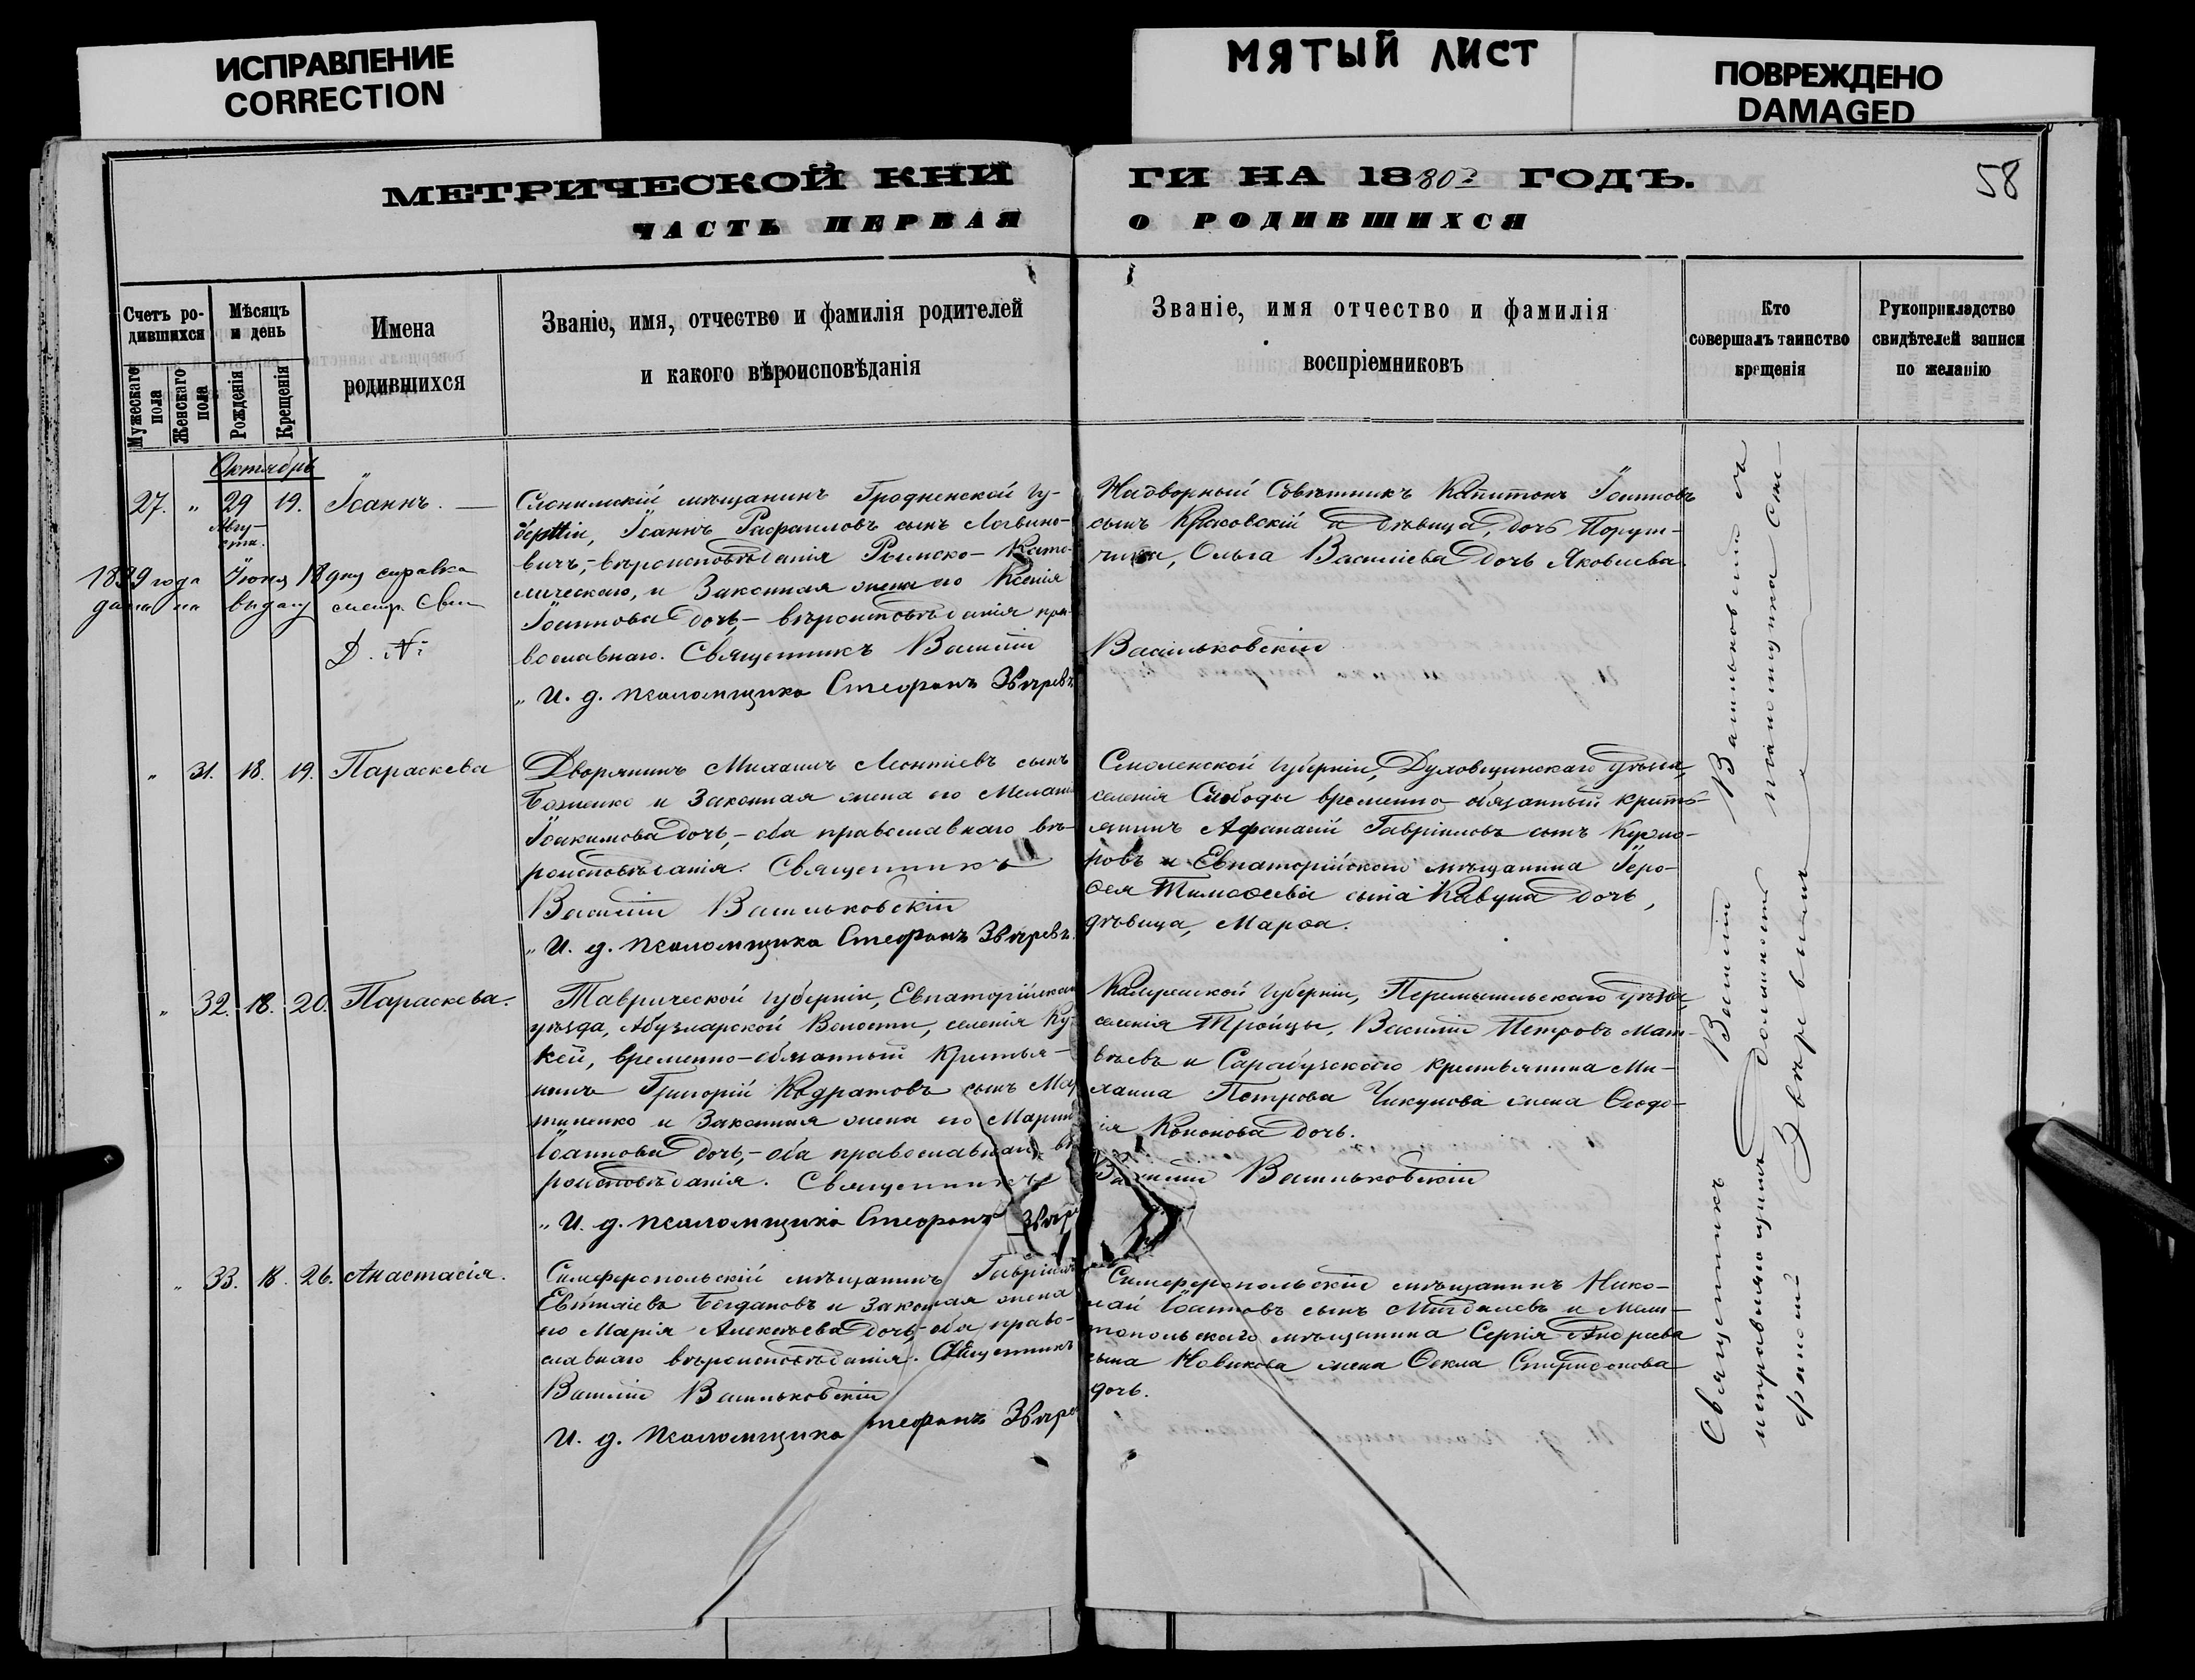 ИСПРАВЛЕНИЕ
CORRECTION
МЯТЫЙ ЛИСТ
ПОВРЕЖДЕНО
DAMAGED
58
МЕТРИЧЕСКОЙ КНИ
ГИ НА 1880? ГОДЪ.
ЧАСТЬ ПЕРВАЯ
О РОДИВШИХСЯ
Счетъ ро-
дившихся
Мужескаго пола
Женскаго пола
Мѣсяцъ
и день
Рожденія
Крещенія
Имена
родившихся
Званіе, имя, отчество и фамилія родителей
и какого вѣроисповѣданія
Званіе, имя отчество и фамилія
воспріемниковъ
Кто
совершалъ таинство
крещенія
Рукоприкладство
свидѣтелей записи
по желанію
Октябрь
27. " 29 19. Іоаннъ.
Авгу-
ста.
1899 года Іюня 18 дня справка
дана на выдачу метр. Свид
Д. №
Слонимскій мѣщанинъ Гродненской Гу-
берніи, Іоаннъ Рафаиловъ сынъ Логвино-
вичъ,- вѣроисповѣданія Римско-Като-
лическаго, и Законная жена его Ксенія
Іоаннова дочь,- вѣроисповѣданія пра-
вославнаго. Священникъ Василій
Васильковскій
" И. д. псаломщика Стефанъ Звѣревъ
Надворный Совѣтникъ Капитонъ Іоанновъ
сынъ Красовскій и дѣвица, дочь Порут-
чика, Ольга Василіева дочь Яковлева.
" 31. 18. 19. Параскева
Дворянинъ Михаилъ Леонтіевъ сынъ
Боженко и Законная жена его Мелані
Іоакимова дочь,- оба православнаго вѣ-
роисповѣданія. Священникъ
Василій Васильковскій
" И. д. псаломщика Стефанъ Звѣревъ.
Смоленской Губерніи, Духовщинскаго уѣзда,
селенія Слободы временно-обязанный кресть-
янинъ Афанасій Гавріиловъ сынъ
ровъ и Евпаторійскаго мѣщанина Іеро-
ѳея Тимоѳеева сына Кавуна дочь,
дѣвица, Марѳа.
" 32. 18. 20. Параскева.
Таврической Губерніи, Евпаторійскаго
уѣзда, Абузларской Волости, селенія Ку-
кей, временно-обязанный Крестья-
нинъ Григорій Кодратовъ сынъ Мар
тиненко и Законная жена его Марин
Іоаннова дочь,- оба православнаго вѣ
роисповѣданія. Священникъ
Василій Васильковскій
" И. д. псаломщика Стефанъ Звѣре
Калужской Губерніи, Перемышльскаго уѣзда,
селенія Тройцы, Василій Петровъ Мат-
вѣевъ и Сарабузскаго крестьянина Ми-
хаила Петрова Чикунова жена Ѳеодо-
сія Кононова дочь.
" 33. 18. 26. Анастасія.
Симферопольскій мѣщанинъ Гавріилъ
Богдановъ и Законная жена
его Марія Алексѣева дочь,- оба право-
славнаго вѣроисповѣданія. Священникъ
Василій Васильковскій
И. д. псаломщика Стефанъ Звѣре
Симферопольскій мѣщанинъ Нико-
лай Іоанновъ сынъ и Мели-
топольскаго мѣщанина Сергія Андреева
сына Новикова жена Ѳекла Спиридонова
дочь.
Священникъ Василій Васильковскій съ
исправляющимъ должность псаломщика Сте-
фаномъ Звѣревымъ